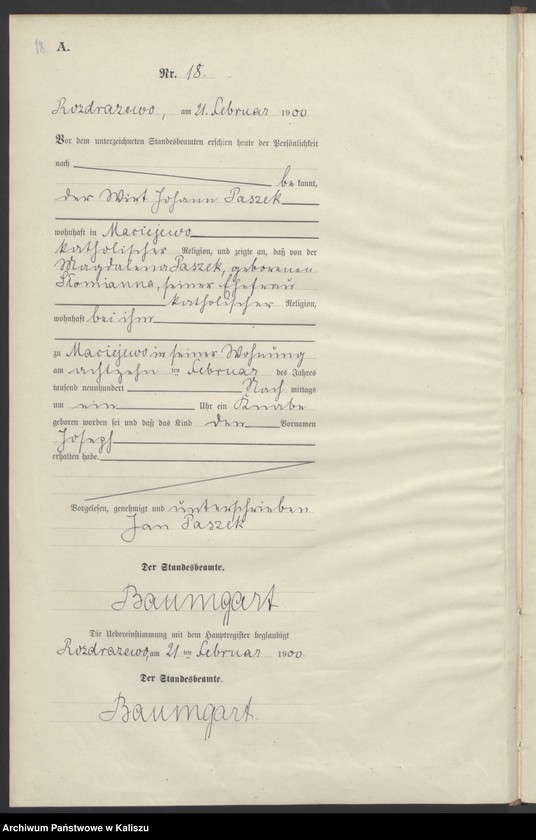 18 A.
Nr. 18.
Rozdrazewo, am 21. Februar 1900
Vor dem unterzeichneten Standesbeamten erschien heute der Persönlichkeit
nach
bekannt,
der Wirt Johann Paszek
wohnhaft in Maciejewo
katholischer Religion, und zeigte an, daß von der
Magdalena Paszek, geborenen
Słomianna, seiner Ehefrau
katholischer Religion,
wohnhaft bei ihm
zu Maciejewo in seiner Wohnung
am achtzehn ten Februar des Jahres
tausend neunhundert Nach mittags
um ein Uhr ein Knabe
geboren worden sei und daß das Kind den Vornamen
Joseph
erhalten habe.
Vorgelesen, genehmigt und unterschrieben
Jan Paszek
Der Standesbeamte.
Baumgart
Die Uebereinstimmung mit dem Hauptregister beglaubigt
Rozdrazewo, am 21 ten Februar 1900
Der Standesbeamte.
Baumgart.
Archiwum Państwowe w Kaliszu